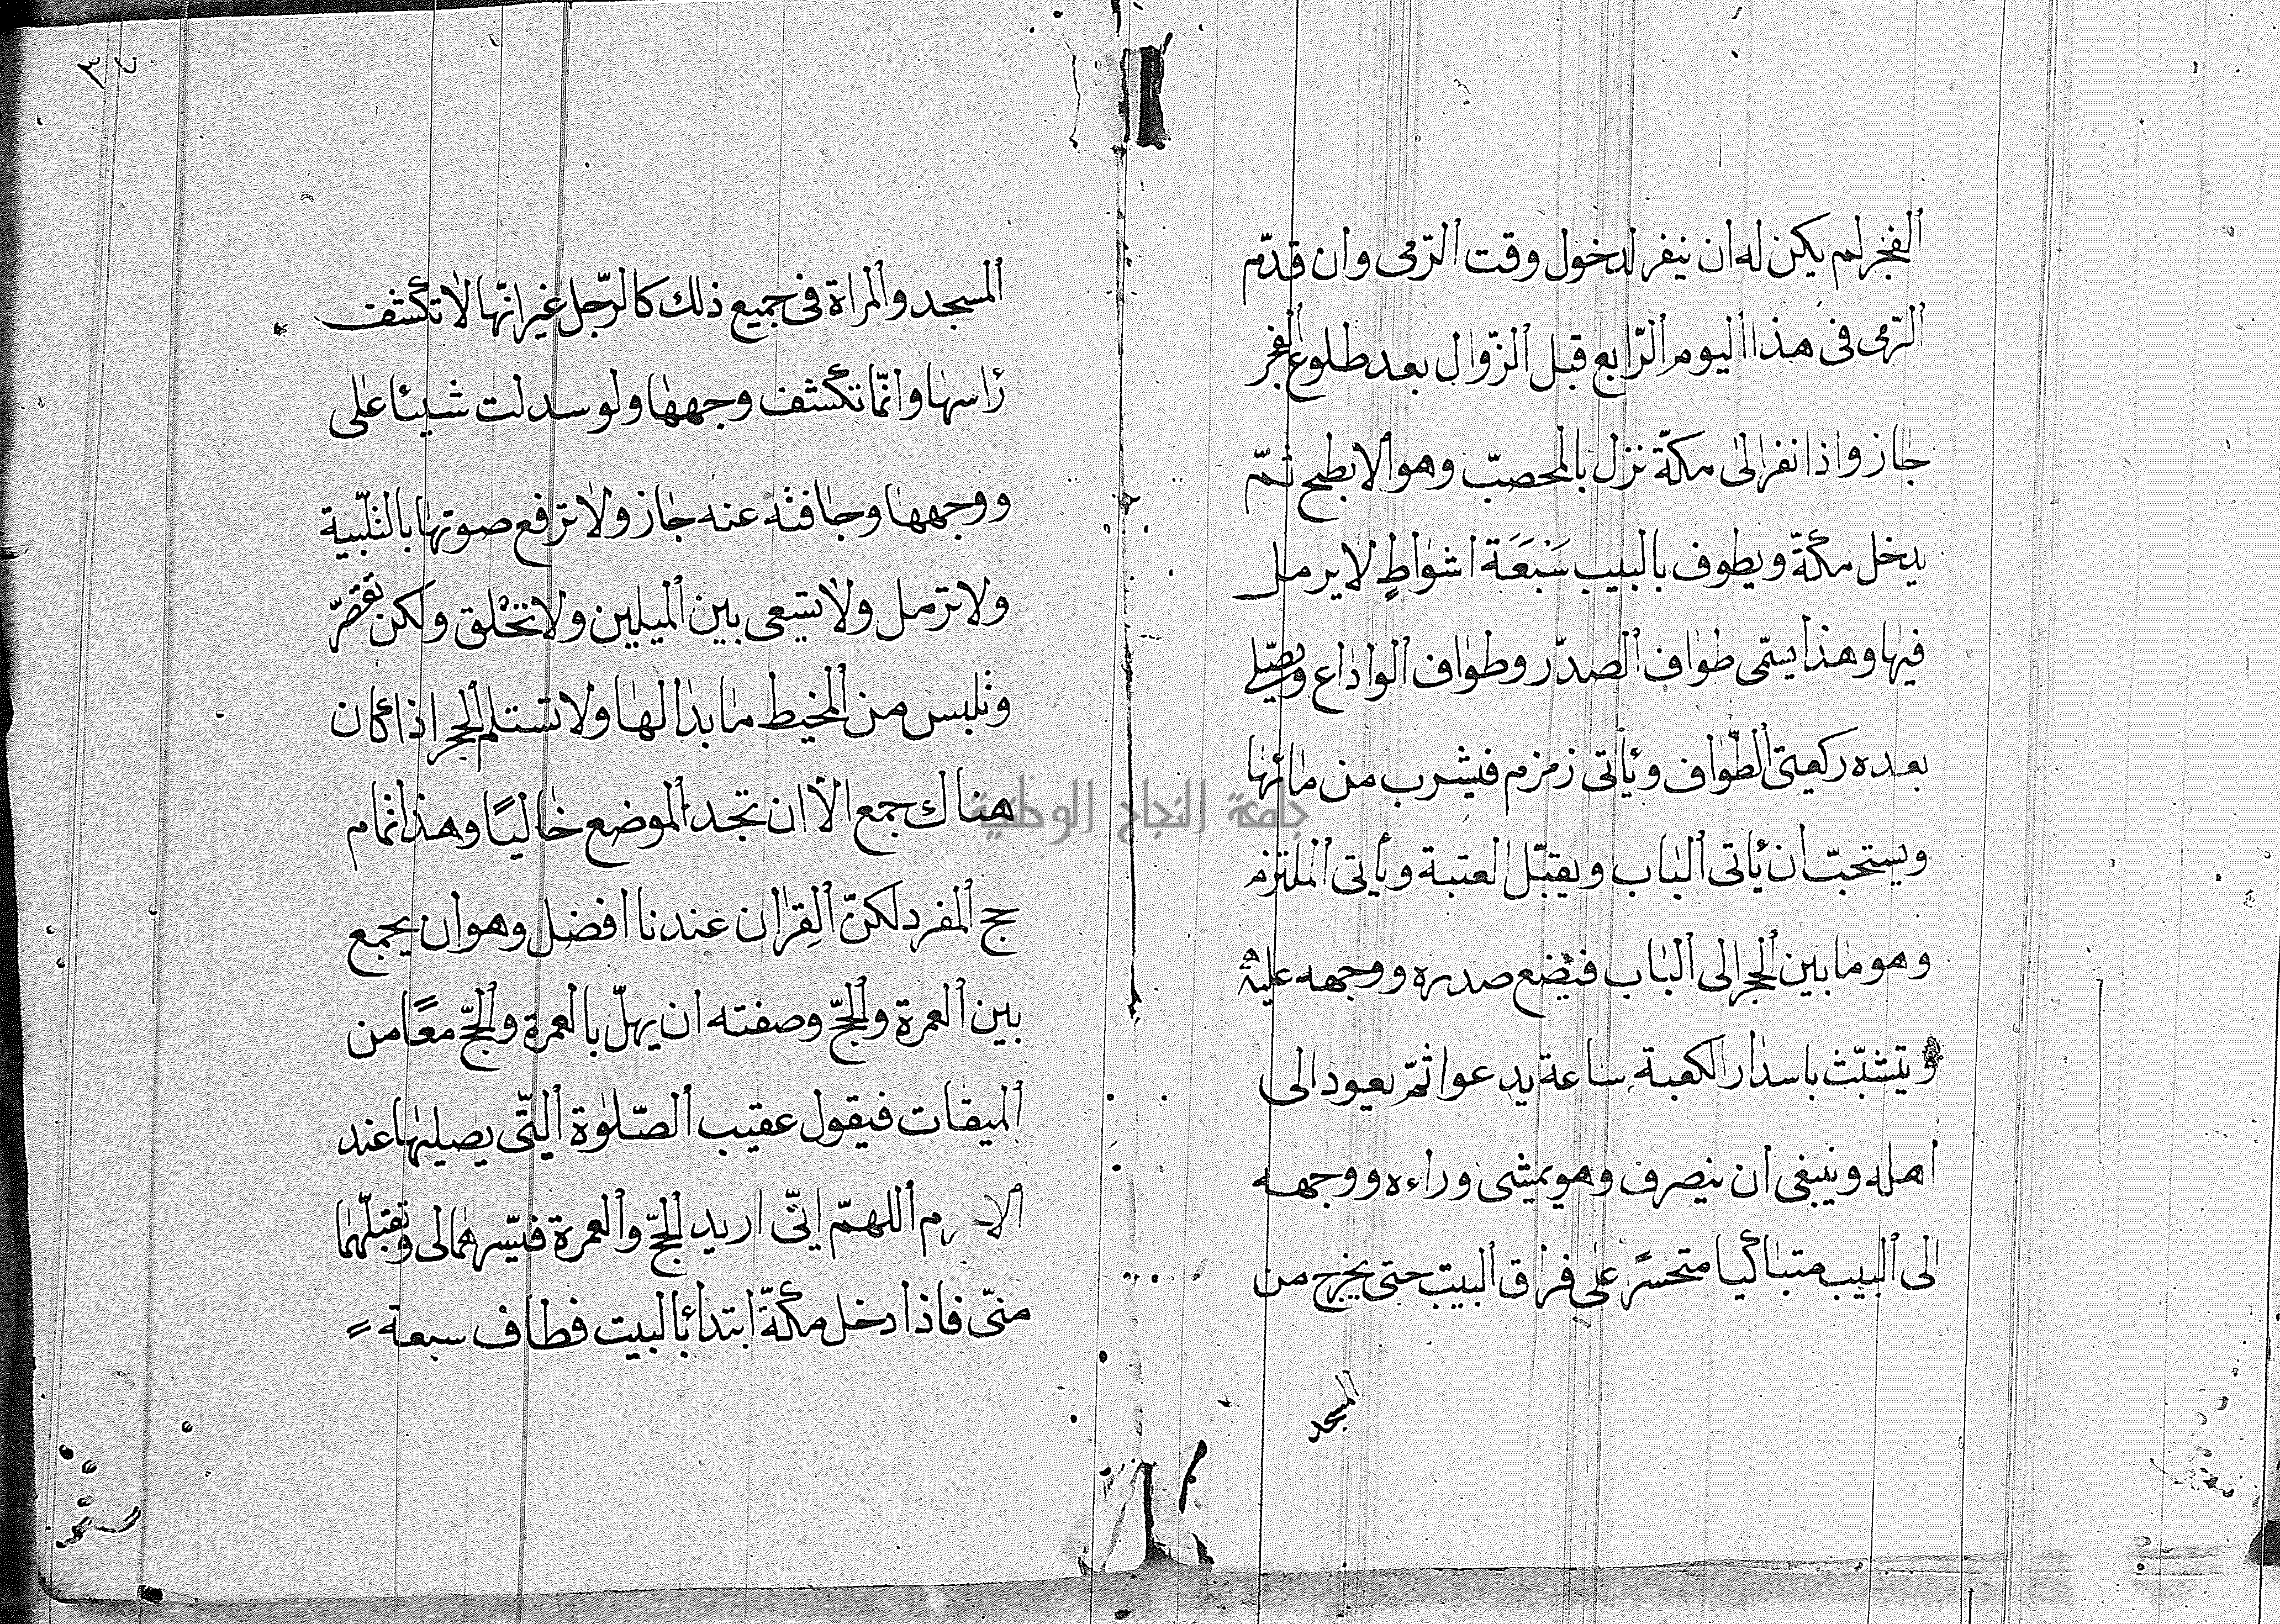 الفجر لم يكن له ان ينفر لدخول وقت الرّمى وان قدّم
الرّمى فى هذا اليوم الرّابع قبل الزّوال بعد طلوع الفجر
جاز واذا نفر الى مكّة نزل بالمحصبّ وهو الابطح ثمّ
يدخل مكّة ويطوف بالبيت سَبْعَة اشواطٍ لا يرمل
فيها وهذا يسمّى طواف الصدّر وطواف الواداع ويصلّى
بعده ركعتى الطّواف ويأتى زمزم فيشرب من مائها
ويستحبّ ان يأتى الباب ويقبّل العتبة ويأتى الملتزم
وهو ما بين الحجر الى الباب فيضع صدره ووجهه عليه
ويتشبّث باسدار الكعبة ساعة يدعوا ثمّ يعود الى
اهله وينبغى ان ينصرف وهو يمشى وراءه ووجهه
الى البيت متباكيا متحسرًا على فراق البيت حتى يخرج من
المسجد
٣٧
المسجد والمراة فى جميع ذلك كالرّجل غير انّها لا تكشف
رأسها وانّما تكشف وجهها ولو سدلت شيئا على
ووجهها وجافته عنه جاز ولا ترفع صوتها بالتّلبية
ولا ترمل ولا تسعى بين الميلين ولا تحْلق ولكن تقصّر
وتلبس من المخيط ما بدا لها ولا تستلم الحجر اذا كان
هناك جمع الاّ ان تجد الموضع خاليًا وهذا تمام
حج المفرد لكنّ القِران عندنا افضل وهو ان يجمع
بين العمرة والحجّ وصفته ان يهلّ بالعمرة والحجّ معًا من
الميقات فيقول عقيب الصّلوة الّتى يصليها عند
الا رم اللهمّ انّى اريد الحجّ والعمرة فيسّرهما لى وتقبّلهما
منّى فاذا دخل مكّة ابتدأ بالبيت فطاف سبعة
جامعة النجاح الوطنية